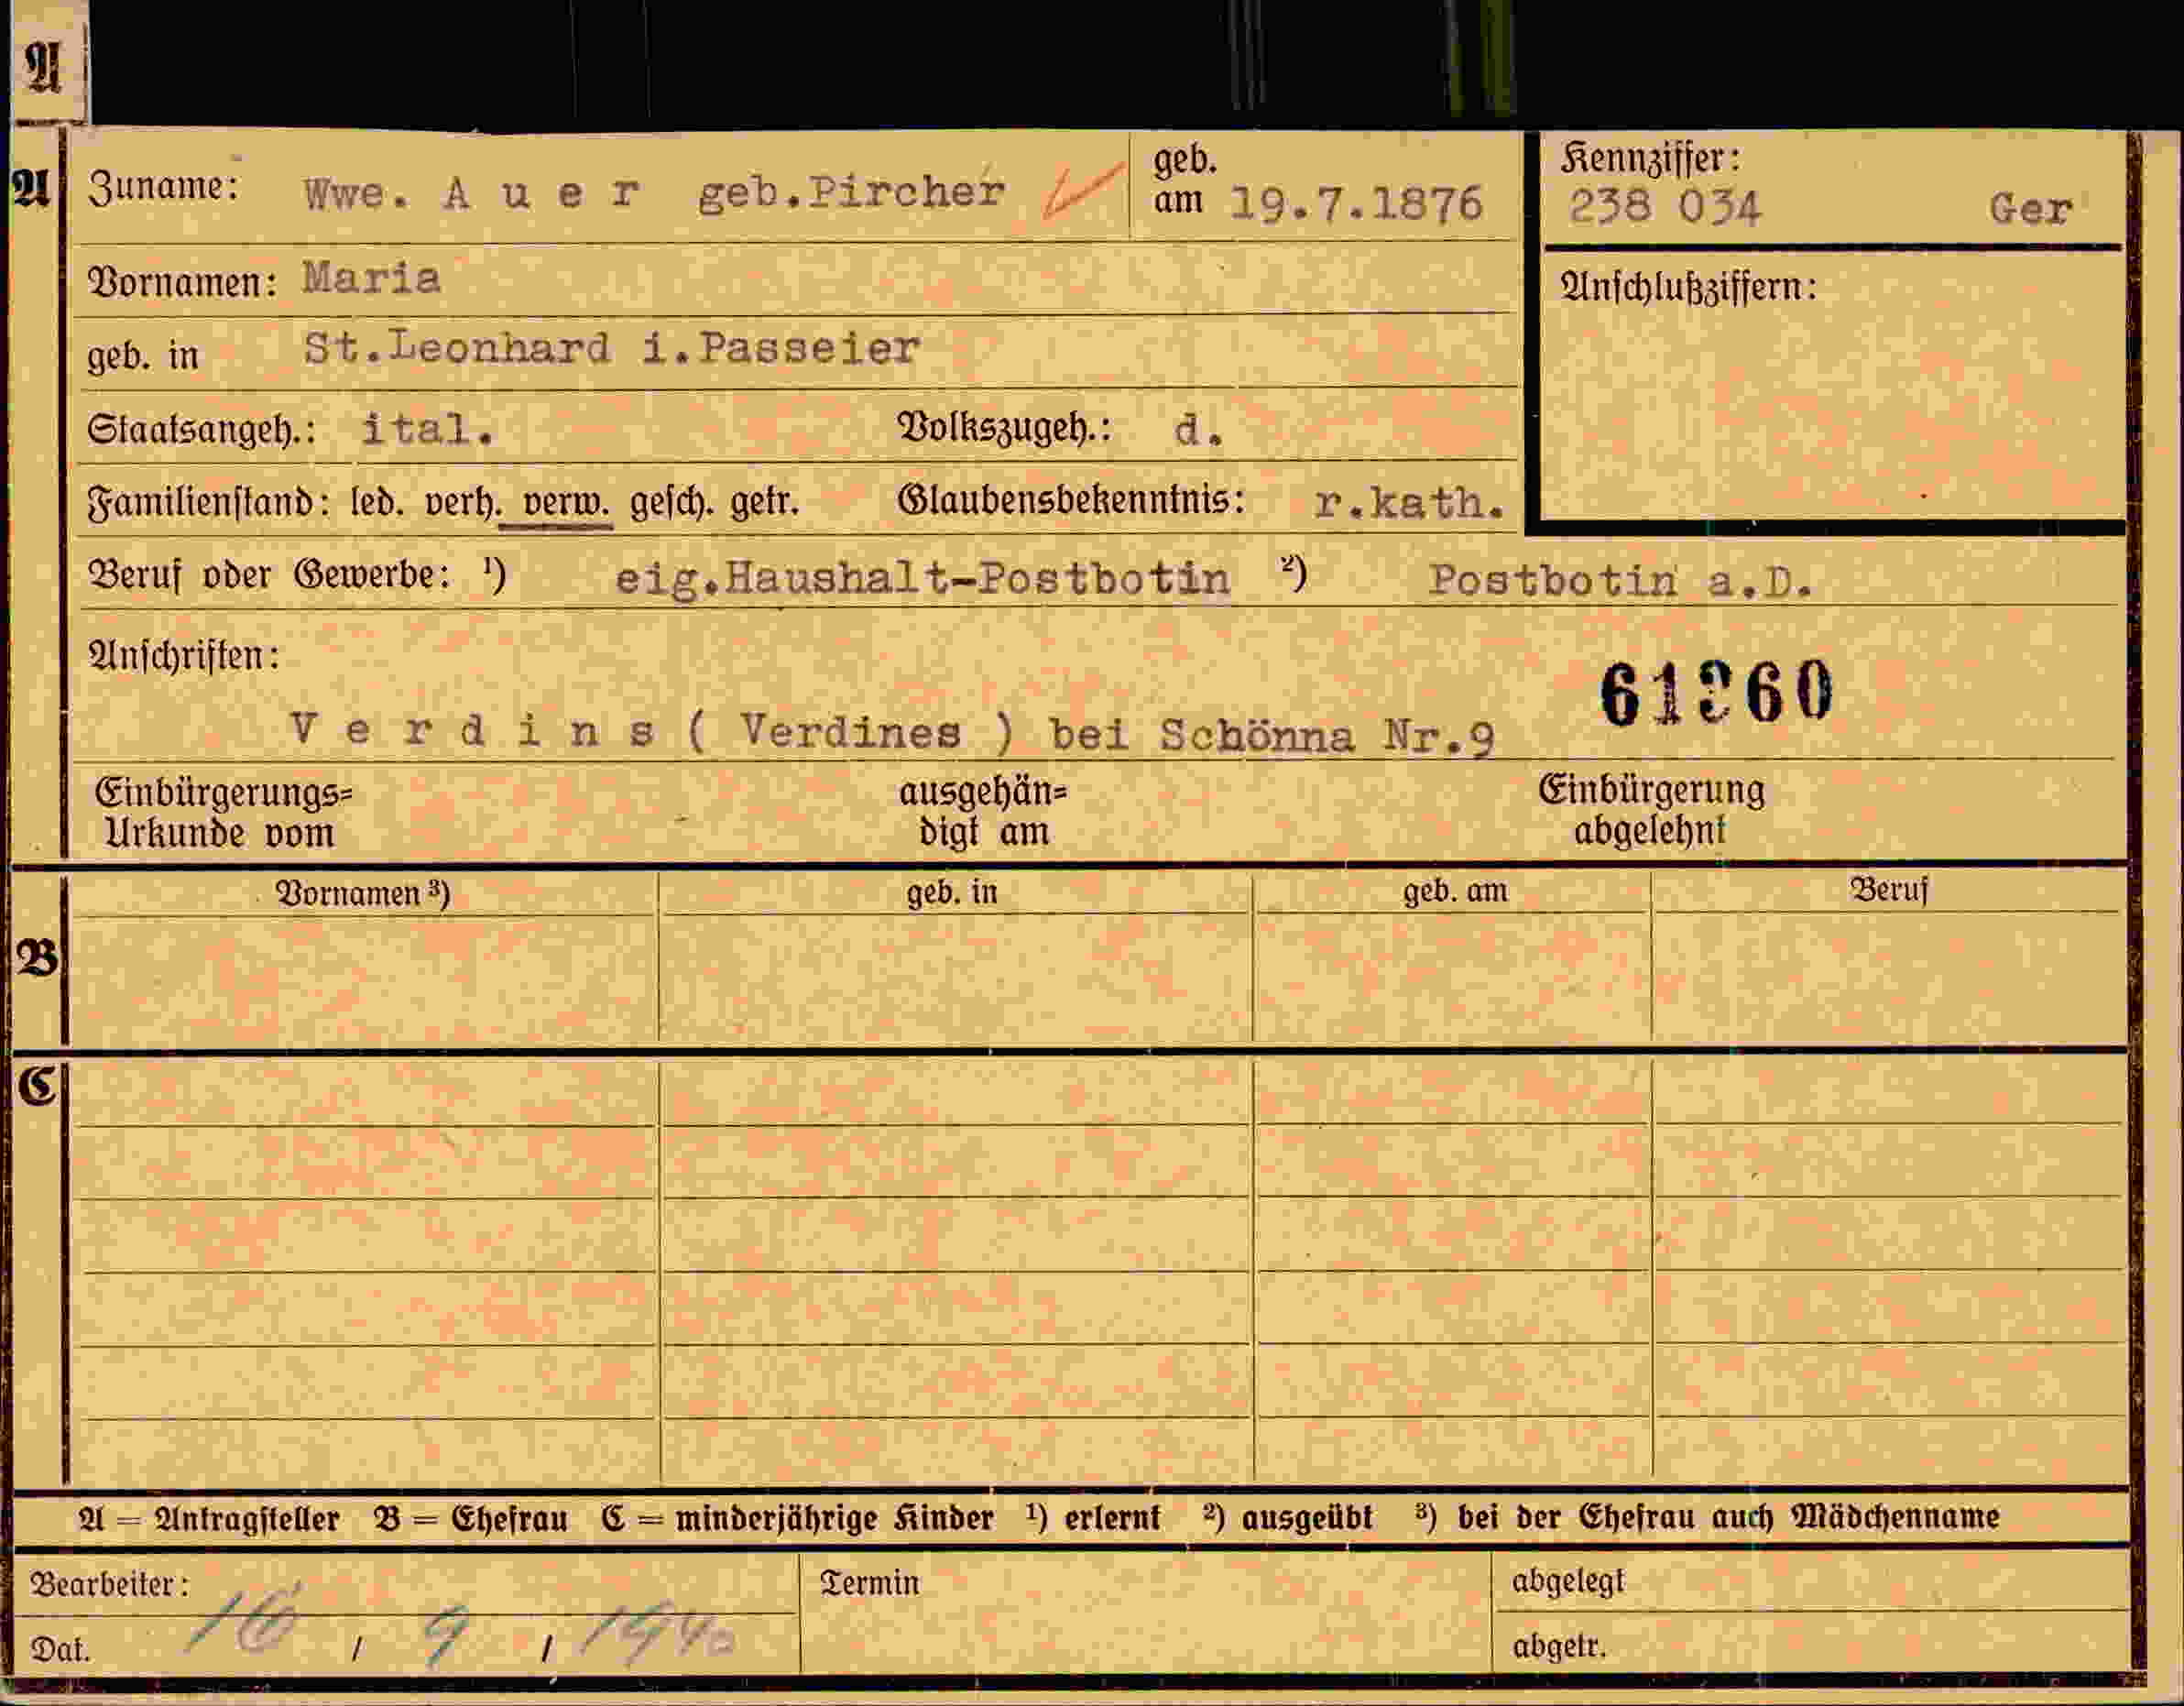 A
A Zuname: Wwe. A u e r geb.Pircher geb. am 19.7.1876
Kennziffer: 238 034 Ger
Vornamen: Maria
Anschlußziffern:
geb. in St.Leonhard i.Passeier
Staatsangeh.: ital. Volkszugeh.: d.
Familienstand: led. verh. verw. gesch. getr. Glaubensbekenntnis: r.kath.
Beruf oder Gewerbe: ¹) eig.Haushalt-Postbotin ²) Postbotin a.D.
Anschriften:
V e r d i n s ( Verdines ) bei Schönna Nr.9
Einbürgerungs=
Urkunde vom
ausgehän=
digt am
Einbürgerung
abgelehnt
Vornamen ³) geb. in geb. am Beruf
B
C
A = Antragsteller B = Ehefrau C = minderjährige Kinder ¹) erlernt ²) ausgeübt ³) bei der Ehefrau auch Mädchenname
Bearbeiter: Termin abgelegt
Dat. 16 / 9 / 1940 abgetr.